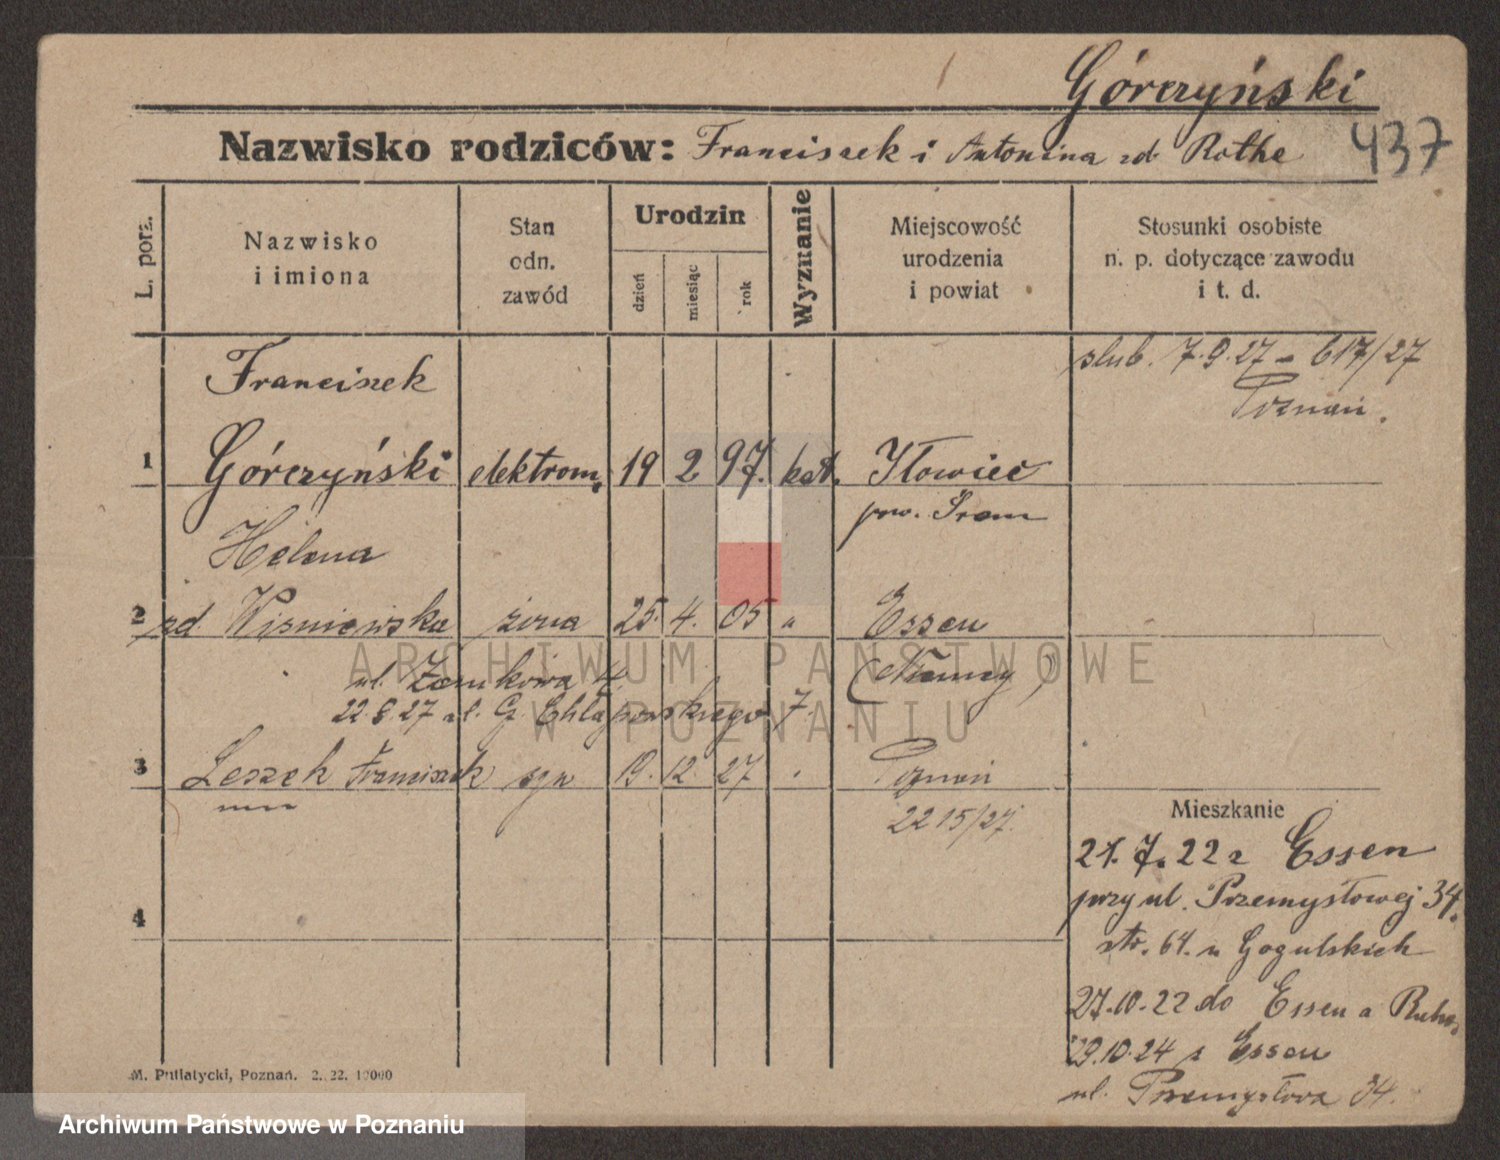 Górczyński
Nazwisko rodziców: Franciszek i Antonina zd. Rothe
437
L. porz.
Nazwisko
i imiona
Stan
odn.
zawód
Urodzin
dzień
miesiąc
rok
Wyznanie
Miejscowość
urodzenia
i powiat
Stosunki osobiste
n. p. dotyczące zawodu
i t. d.
ślub. 7.9.27 – 617/27
Poznań.
Franciszek
1 Górczyński elektrom. 19 2 97. kat. Iłowiec
pow. Śrem
Helena
2 zd. Wiśniewska żona 25. 4. 05 " Essen
(Niemcy)
ul. Zamkowa 4.
22.8.27 ul. G. Chłapowskiego 7.
3 Leszek Franciszek syn 19. 12. 27 " Poznań
2215/27.
4
Mieszkanie
21. 7. 22 z Essen
przy ul. Przemysłowej 34.
str. 61. u Gogulskich
27.10.22 do Essen a Ruhr
29.10.24 z Essen
ul. Przemysłowa 34.
M. Putiatycki, Poznań. 2. 22. 10000
ARCHIWUM PAŃSTWOWE
W POZNANIU
Archiwum Państwowe w Poznaniu